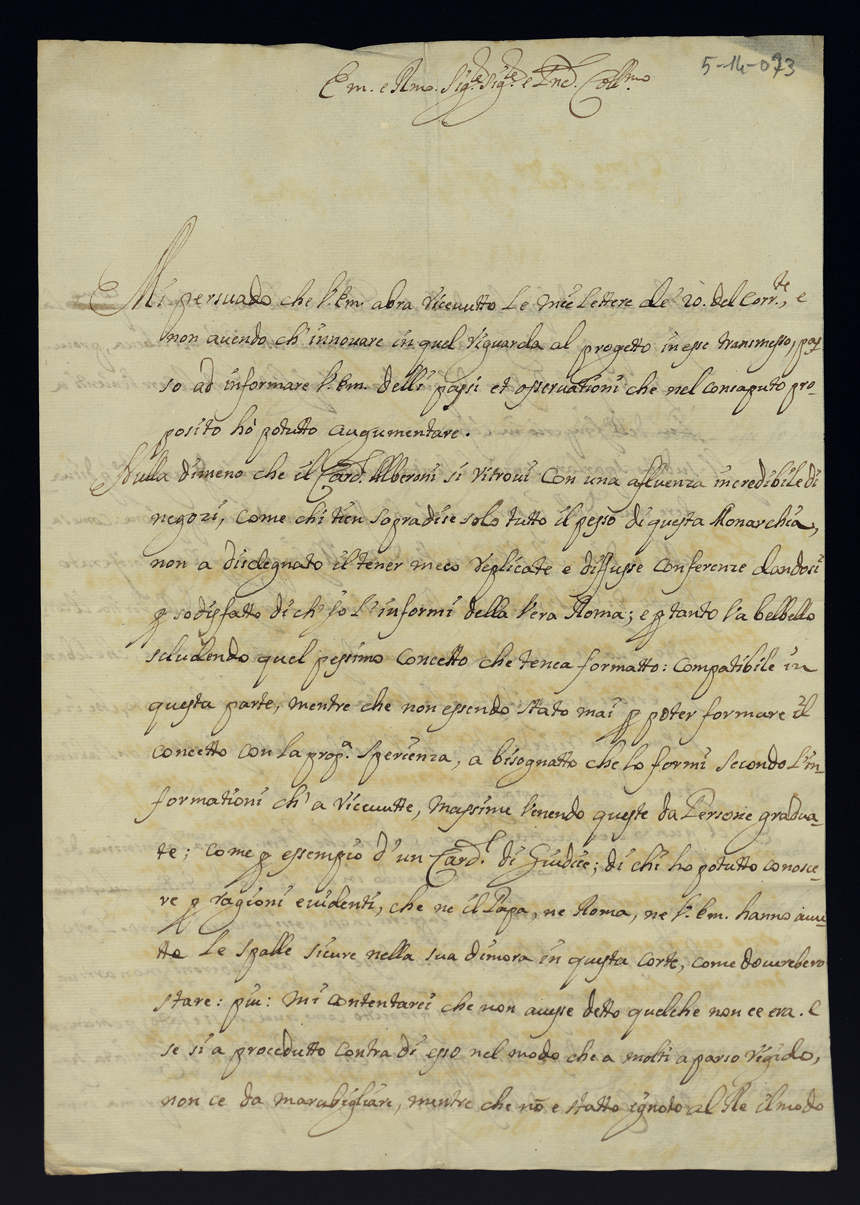 5-14-073
Em. e Rmo. Sig.re Sig.re e Pnd. Coll.mo
Mi persuado che V. Em. abra riceuutto le mie lettere de' 20. del Corr.te, e
non auendo ch' innouare in quel riguarda al progetto in esse transmesso, pas
so ad informare V. Em. delli passi et osseruationi che nel consaputo pro-
posito hò potutto augumentare.
Nulla dimeno che il Card. Alberoni si ritroui con una afluenza incredibile di
negozi, come chi tien sopra dise solo tutto il pesso di questa Monarchia,
non a disdegnato il tener meco replicate e diffusse conferenze dandosi
p sodisfatto di ch' io l' informi della vera Roma; e p tanto va belbello
scludendo quel pessimo concetto che tenea formatto: compatibile in
questa parte, mentre che non essendo stato mai p poter formare il
concetto con la prop.a sperienza, a bisognatto che lo formi secondo l' in-
formationi ch' a riceuutte, massime venendo queste da Persone gradua-
te; come p essempio d' un Card.l di Giudice; di chi ho potutto conosce-
re p ragioni euidenti, che ne il Papa, ne Roma, ne V. Em. hanno auu-
tto le spalle sicure nella sua dimora in questa corte, come dourebero
stare: piu: mi contentarei che non ausse detto quelche non ce era. e
se si a procedutto contra di esso nel modo che a molti a parso rigido,
non ce da marabigliare, mentre che nō e statto ignoto al Re il modo